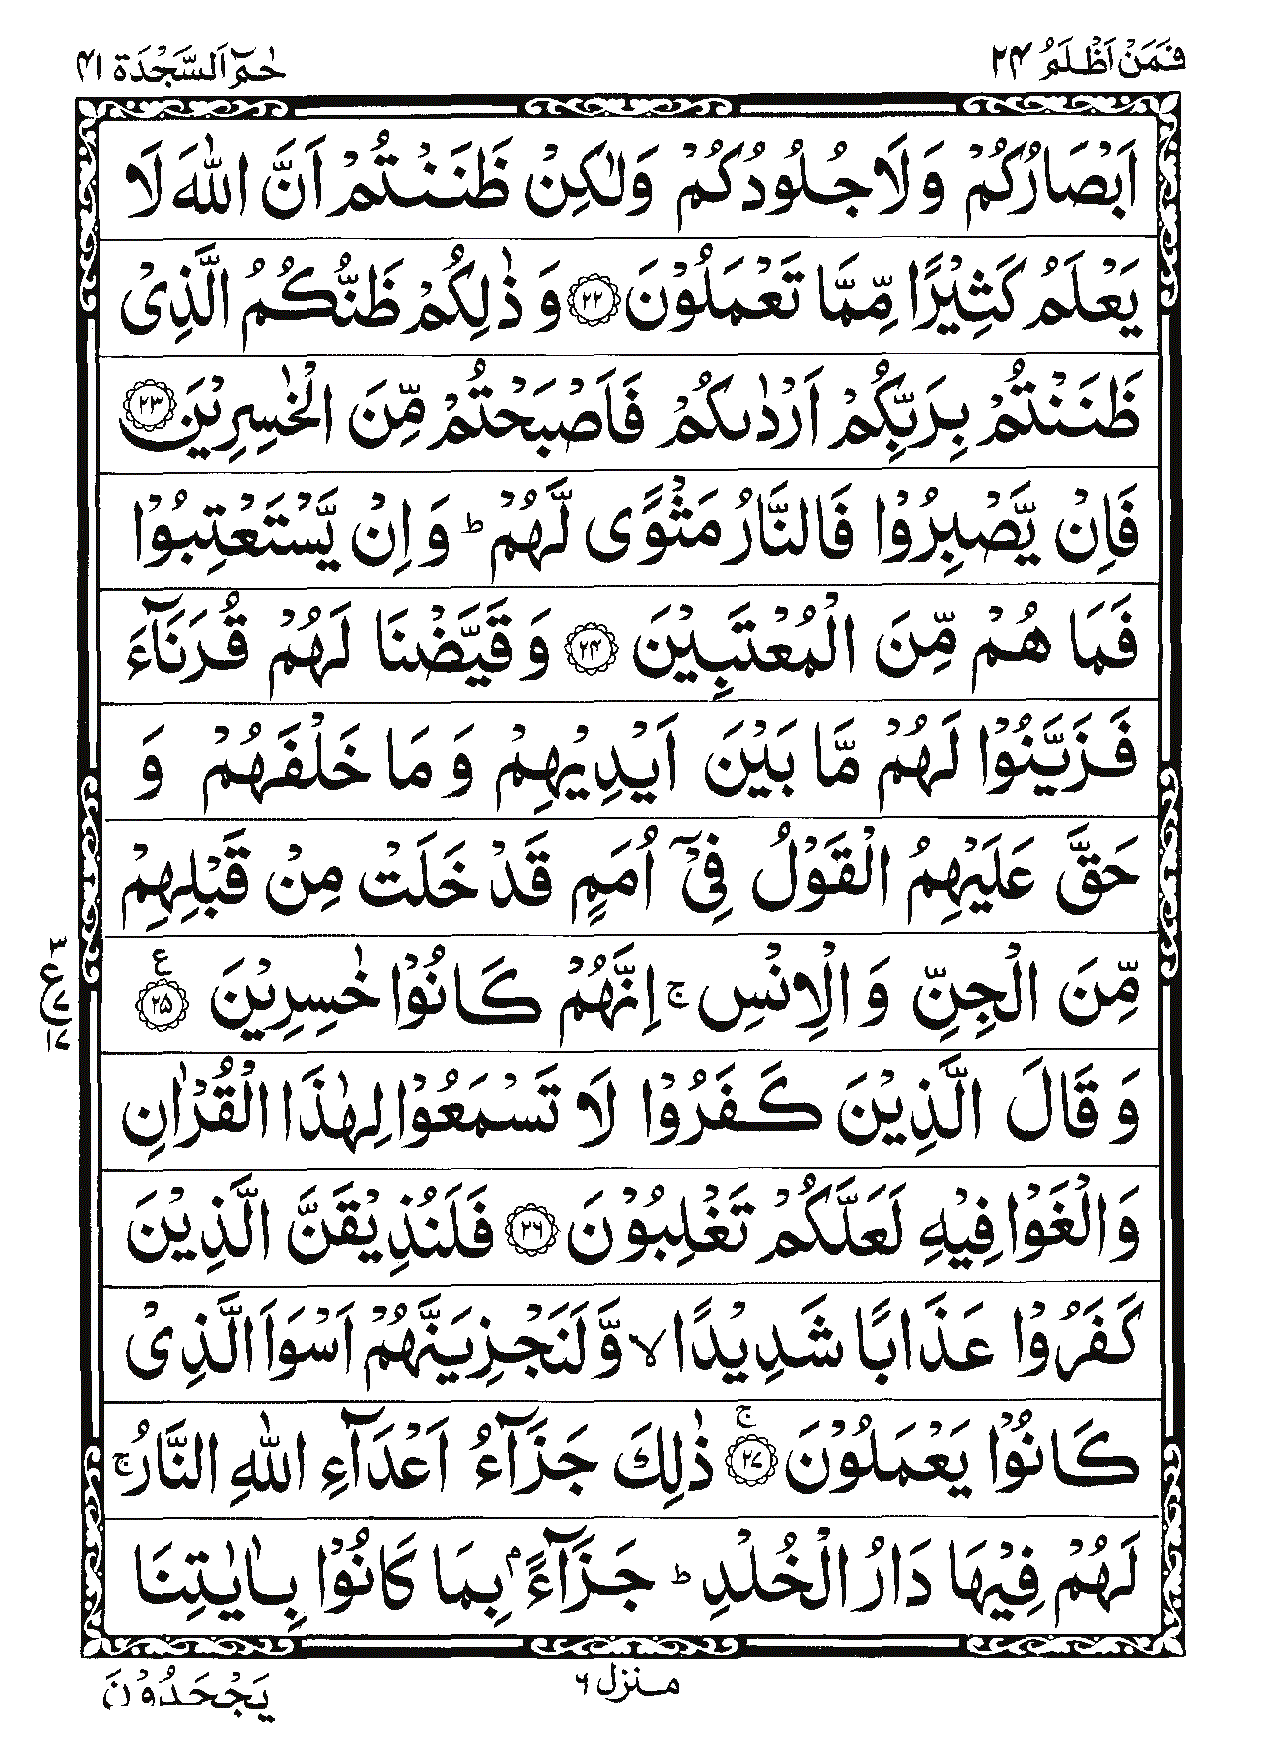 فَمَنْ اَظْلَمُ ۲۴
حٰمٓ اَلسَّجْدَة ۴۱
اَبْصَارُكُمْ وَلَا جُلُوْدُكُمْ وَلٰكِنْ ظَنَنْتُمْ اَنَّ اللّٰهَ لَا
يَعْلَمُ كَثِيْرًا مِّمَّا تَعْمَلُوْنَ ﴿۲۲﴾ وَ ذٰلِكُمْ ظَنُّكُمُ الَّذِيْ
ظَنَنْتُمْ بِرَبِّكُمْ اَرْدٰىكُمْ فَاَصْبَحْتُمْ مِّنَ الْخٰسِرِيْنَ ﴿۲۳﴾
فَاِنْ يَّصْبِرُوْا فَالنَّارُ مَثْوًى لَّهُمْ ؕ وَ اِنْ يَّسْتَعْتِبُوْا
فَمَا هُمْ مِّنَ الْمُعْتَبِيْنَ ﴿۲۴﴾ وَ قَيَّضْنَا لَهُمْ قُرَنَآءَ
فَزَيَّنُوْا لَهُمْ مَّا بَيْنَ اَيْدِيْهِمْ وَ مَا خَلْفَهُمْ وَ
حَقَّ عَلَيْهِمُ الْقَوْلُ فِيْۤ اُمَمٍ قَدْ خَلَتْ مِنْ قَبْلِهِمْ
مِّنَ الْجِنِّ وَ الْاِنْسِ ۚ اِنَّهُمْ كَانُوْا خٰسِرِيْنَ ﴿۲۵﴾ ع
۳
ع
۷
۱۷
وَ قَالَ الَّذِيْنَ كَفَرُوْا لَا تَسْمَعُوْا لِهٰذَا الْقُرْاٰنِ
وَالْغَوْا فِيْهِ لَعَلَّكُمْ تَغْلِبُوْنَ ﴿۲۶﴾ فَلَنُذِيْقَنَّ الَّذِيْنَ
كَفَرُوْا عَذَابًا شَدِيْدًا ۙ وَّلَنَجْزِيَنَّهُمْ اَسْوَاَ الَّذِيْ
كَانُوْا يَعْمَلُوْنَ ﴿۲۷﴾ۚ ذٰلِكَ جَزَآءُ اَعْدَآءِ اللّٰهِ النَّارُ ۚ
لَهُمْ فِيْهَا دَارُ الْخُلْدِ ؕ جَزَآءًۢ بِمَا كَانُوْا بِاٰيٰتِنَا
منزل ۶
يَجْحَدُوْنَ